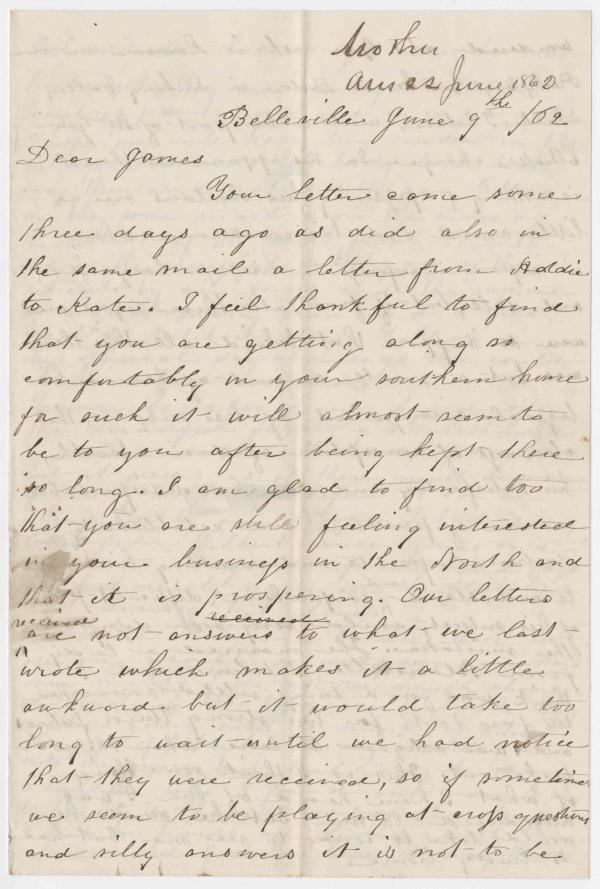 Mother
Ans 22 June 1862
Belleville June 9th /62
Dear James
Your letter came some
three days ago as did also in
the same mail a letter from Addie
to Kate. I feel thankful to find
that you are getting along so
comfortably in your southern home
for such it will almost seem to
be to you after being kept there
so long. I am glad to find too
that you are still feeling interested
in your business in the North and
that it is prospering. Our letters
received received
are not answers to what we last
wrote which makes it a little
awkward but it would take too
long to wait until we had notice
that they were received, so if sometimes
we seem to be playing at cross questions
and silly answers it is not to be